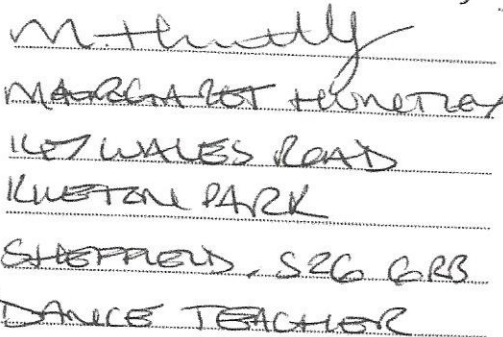 M. Huntly
MARGARET HUNTLEY
147 WALES ROAD
KIVETON PARK
SHEFFIELD. S26 6RB
DANCE TEACHER